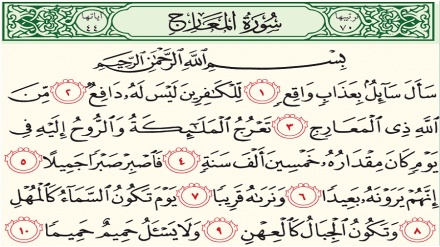 ترتيبها ٧٠ سُورَةُ المَعَارِجِ آياتها ٤٤
بِسْمِ اللَّهِ الرَّحْمَٰنِ الرَّحِيمِ
سَأَلَ سَآئِلٌۢ بِعَذَابٍ وَاقِعٍ ١ لِّلْكَٰفِرِينَ لَيْسَ لَهُۥ دَافِعٌ ٢ مِّنَ
ٱللَّهِ ذِي ٱلْمَعَارِجِ ٣ تَعْرُجُ ٱلْمَلَٰٓئِكَةُ وَٱلرُّوحُ إِلَيْهِ فِي
يَوْمٍ كَانَ مِقْدَارُهُۥ خَمْسِينَ أَلْفَ سَنَةٍ ٤ فَٱصْبِرْ صَبْرًا جَمِيلًا ٥
إِنَّهُمْ يَرَوْنَهُۥ بَعِيدًا ٦ وَنَرَىٰهُ قَرِيبًا ٧ يَوْمَ تَكُونُ ٱلسَّمَآءُ كَٱلْمُهْلِ
٨ وَتَكُونُ ٱلْجِبَالُ كَٱلْعِهْنِ ٩ وَلَا يَسْـَٔلُ حَمِيمٌ حَمِيمًا ١٠